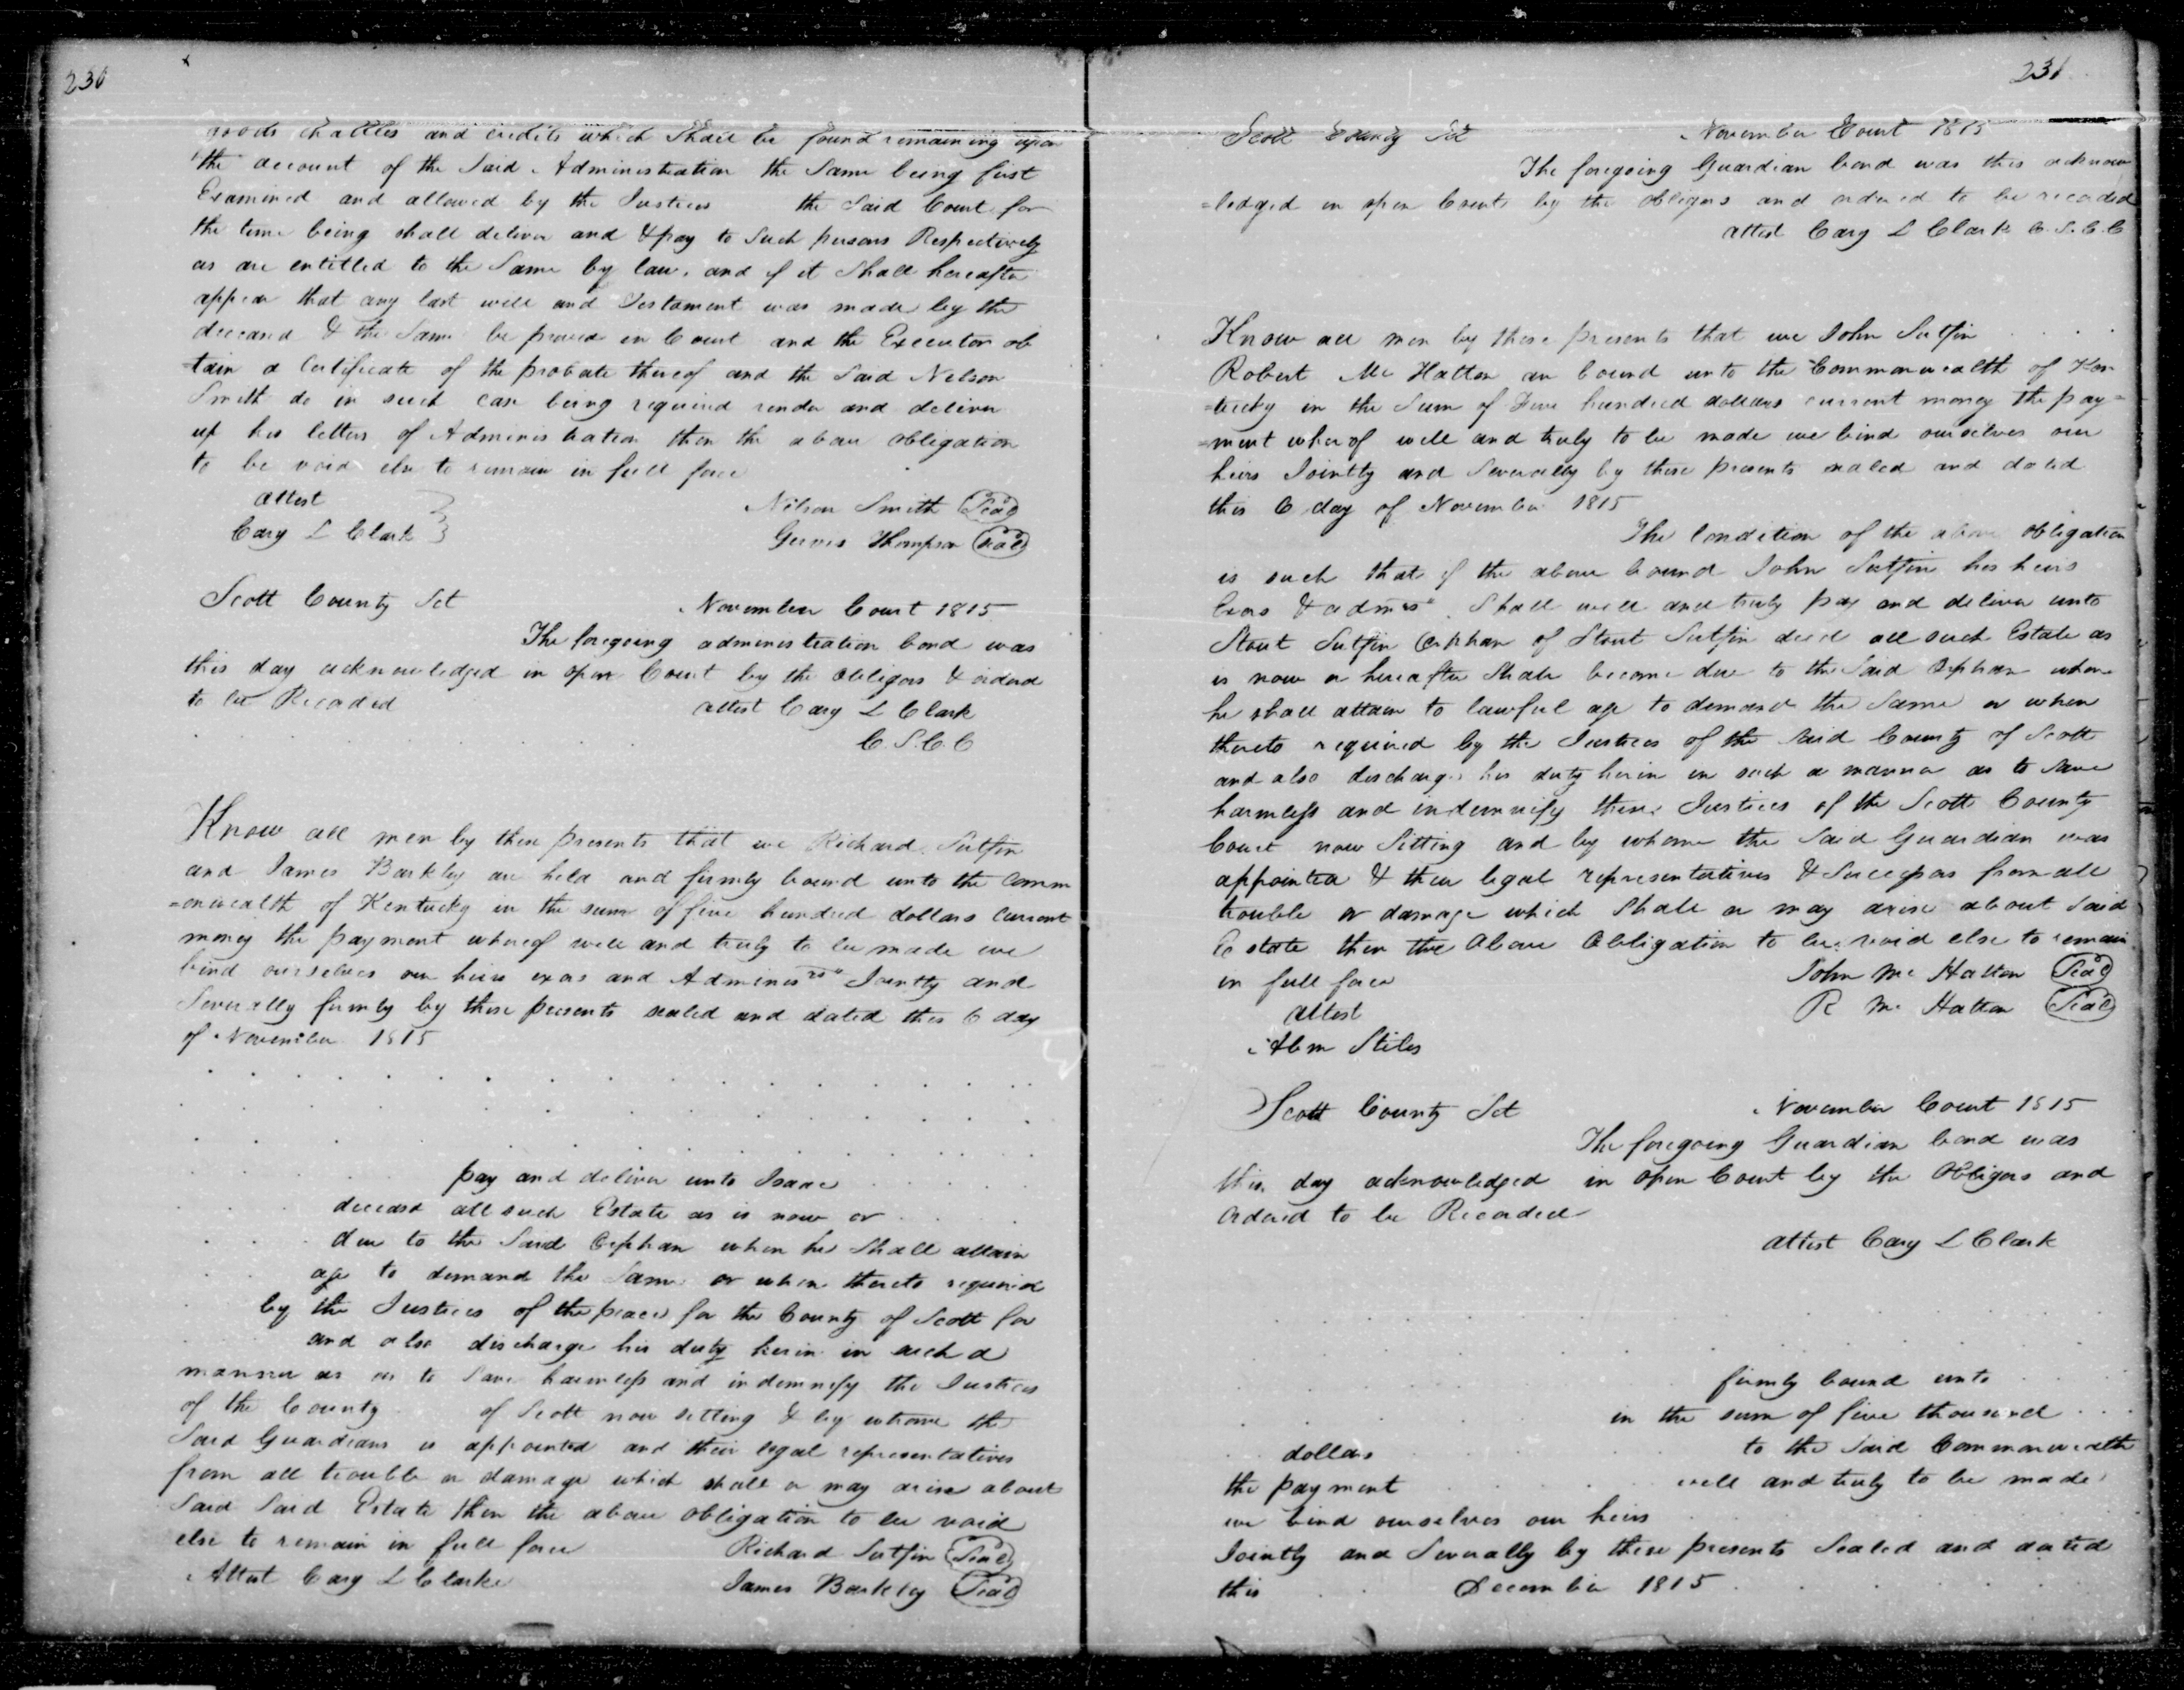 230
goods chattles and credits which Shall be found remaining upon
the account of the Said Administration the Same being first
Examined and allowed by the Justices the Said Court for
the time being shall deliver and & pay to Such persons Respectively
as are entitled to the Same by law. and if it Shall hereafter
appear that any last will and Testament was made by the
deceasd & the Same be proved in Court and the Executor ob
=tain a Certificate of the probate thereof and the Said Nelson
Smith do in such case being required render and deliver
up his letters of Administration then the above obligation
to be void else to remain in full force
attest
Nelson Smith Seal
Cary L Clark
Gerves Thompson Seal
Scott County Sct November Court 1815
The foregoing administration bond was
this day acknowledged in open Court by the obligors & orderd
to be Recorded attest Cary L Clark
C. S. C. C
Know all men by these presents that we Richard Sutfin
and James Barkley are held and firmly bound unto the Comm
=onwealth of Kentucky in the sum of five hundred dollars current
money the payment whereof well and truly to be made we
bind ourselves our heirs exos and Adminisrs Jointly and
Severally firmly by these presents sealed and dated this 6 day
of November 1815
pay and deliver unto Isaac
deceasd all such Estate as is now or
due to the Said Orphan when he Shall attain
age to demand the Same or when thereto required
by the Justices of the peace for the County of Scott for
and also discharge his duty herin in such a
manner as as to Save harmless and indemnify the Justices
of the County of Scott now setting & by whome the
Said Guardians is appointed and their legal representatives
from all trouble or damage which shall or may arise about
Said Said Estate then the above obligation to be void
else to remain in full force Richard Sutfin Seal
Attest Cary L Clarke James Barkley Seal
231
Scott County Sct November Court 1815
The foregoing Guardian bond was this acknow
=ledged in open Court by the obligors and ordered to be recorded
attest Cary L Clark C. S. C. C
Know all men by these presents that we John Sutfin
Robert Mc Hatton are bound unto the Commonwealth of Ken
=tucky in the Sum of Five hundred dollars current money the pay=
=ment wherof well and truly to be made we bind ourselves our
heirs Jointly and Severally by these presents sealed and dated
this 6 day of November 1815
The Condition of the above obligation
is such that if the above bound John Sutfin his heirs
& admrs Shall well and truly pay and deliver unto
Stout Sutfin Orphan of Stout Sutfin decd all such Estate as
is now or hereafter Shall become due to the Said Orphan when
he shall attain to lawful age to demand the Same or when
thereto required by the Justices of the Said County of Scott
and also discharge his duty herin in such a manner as to Save
harmless and indemnify these Justices of the Scott County
Court now Sitting and by whome the Said Guardian was
appointed & their legal representatives & Successors from all
trouble or damage which Shall or may arise about Said
Estate then the above Obligation to be void else to remain
in full force John Mc Hatton Seal
attest R Mc Hatton Seal
Abm Stiles
Scott County Sct November Court 1815
The foregoing Guardian bond was
this day acknowledged in open Court by the Obligors and
ordered to be Recorded
attest Cary L Clark
firmly bound unto
in the sum of five thousand
dollars to the Said Commonwealth
the payment well and truly to be made
we bind ourselves our heirs
Jointly and Severally by these presents Sealed and dated
this December 1815